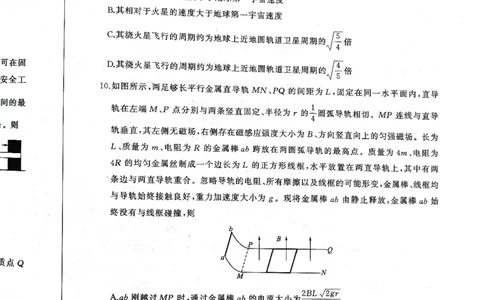 B.其相对于火星的速度大于地球第一宇宙速度
C.其绕火星飞行的周期约为地球上近地圆轨道卫星周期的√(5/4)倍
D.其绕火星飞行的周期约为地球上近地圆轨道卫星周期的√(4/5)倍
10.如图所示,两足够长平行金属直导轨MN、PQ的间距为L,固定在同一水平面内,直导
轨在左端M、P点分别与两条竖直固定、半径为r的1/4圆弧导轨相切。MP连线与直导
轨垂直,其左侧无磁场,右侧存在磁感应强度大小为B、方向竖直向上的匀强磁场。长为
L、质量为m、电阻为R的金属棒ab跨放在两圆弧导轨的最高点。质量为4m、电阻为
4R的均匀金属丝制成一个边长为L的正方形线框,水平放置在两直导轨上,其中有两
条边与两直导轨重合。忽略导轨的电阻、所有摩擦以及线框的可能形变,金属棒、线框均
与导轨始终接触良好,重力加速度大小为g。现将金属棒ab由静止释放,金属棒ab始
终没有与线框碰撞,则
b
P
B
Q
a
M
N
A.ab刚越过MP时,通过金属棒ab的电流大小为2BL√(2gr)
可在固
安全工
间的最
则
质点Q